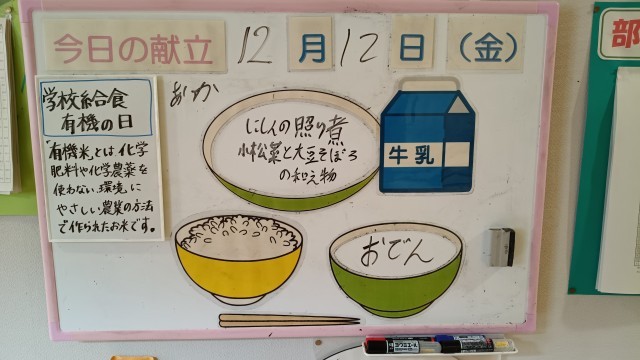 今日の献立 12月12日(金)
学校給食
有機の日
「有機米」とは化学
肥料や化学農薬を
使わない、環境に
やさしい農業の方法
で作られたお米です。
あか
にしんの照り煮
小松菜と大豆そぼろ
の和え物
牛乳
おでん
部